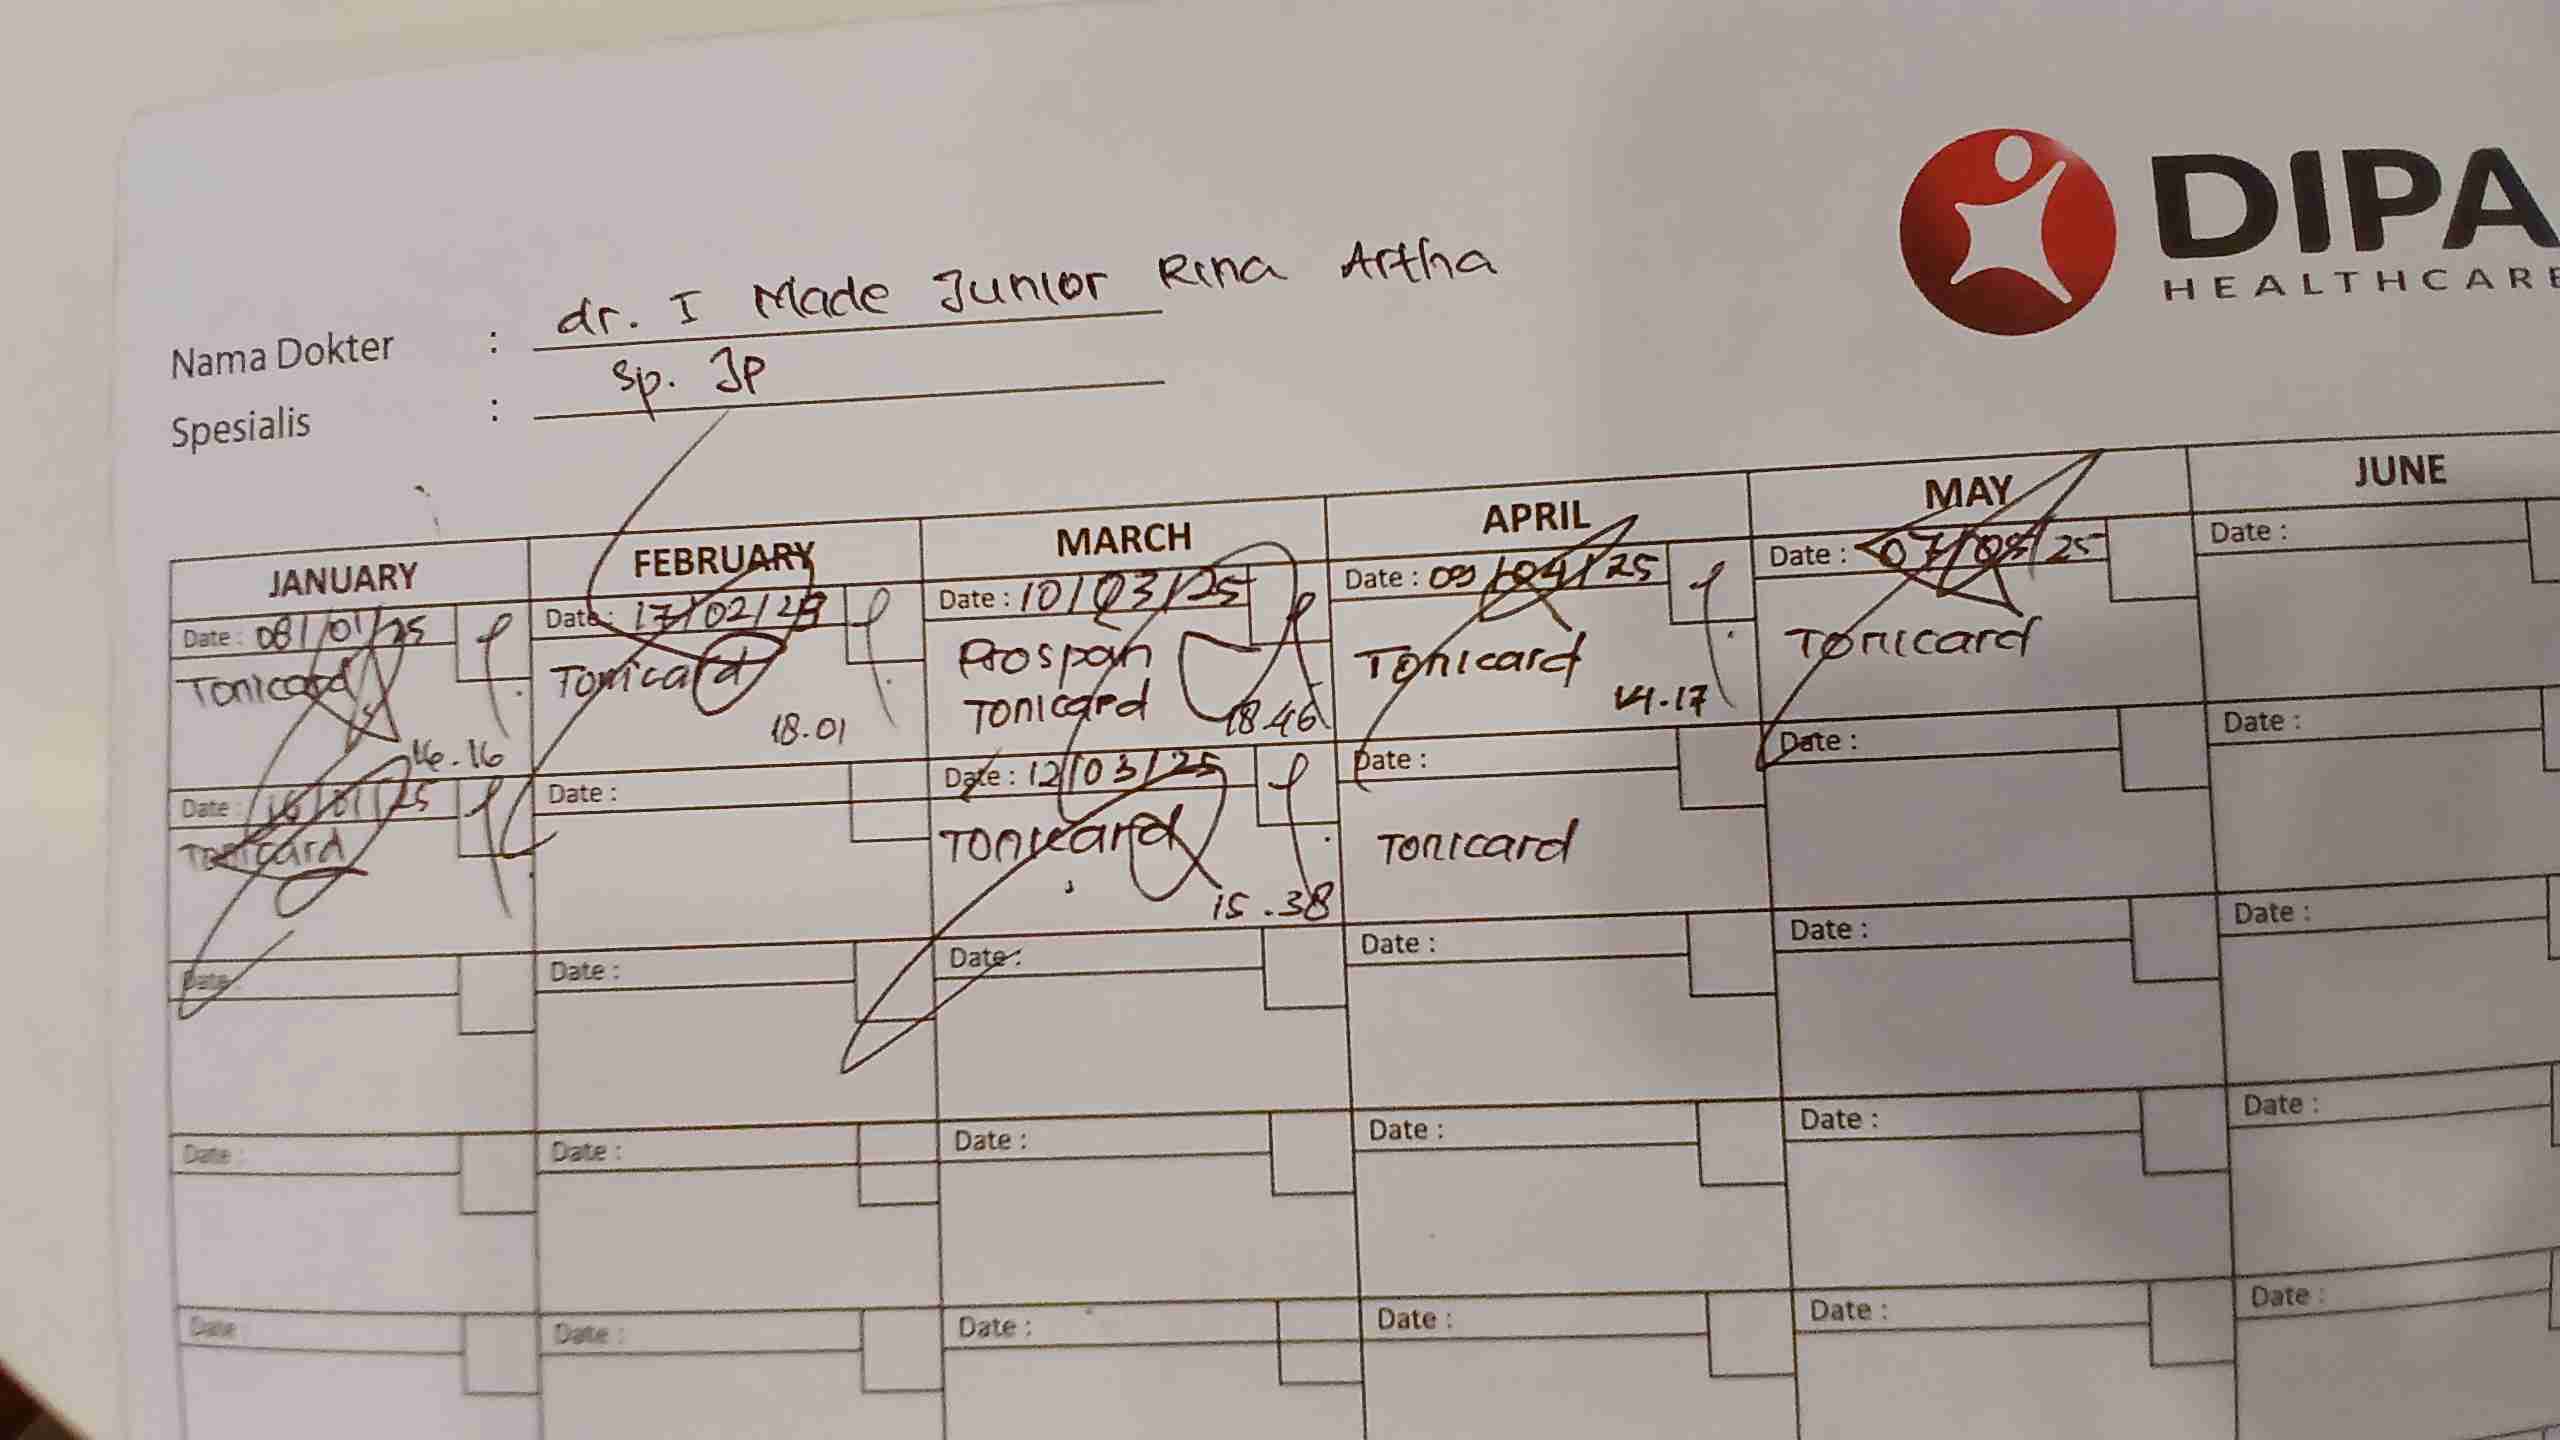 DIPA
HEALTHCARE
Nama Dokter : dr. I Made Junior Rina Artha
Spesialis : Sp. JP
JANUARY FEBRUARY MARCH APRIL MAY JUNE
Date : 08/01/25 Date : 17/02/25 Date : 10/03/25 Date : 09/04/25 Date : 07/05/25 Date :
Tonicard Tonicard Prospan Tonicard Tonicard
Tonicard
16.16 18.01 18.46 14.17
Date : 16/01/25 Date : Date : 12/03/25 Date : Date : Date :
Tonicard Tonicard Tonicard
15.38
Date : Date : Date : Date : Date : Date :
Date : Date : Date : Date : Date : Date :
Date : Date : Date : Date : Date : Date :